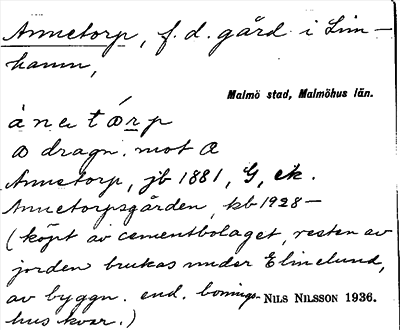 Annetorp, f.d. gård i Lim-
hamn,
Malmö stad, Malmöhus län.
dragn. mot
Annetorp, jb 1881, G, ek.
Annetorpsgården, kb 1928–
(köpt av cementbolaget, resten av
jorden brukas under Elinelund,
av byggn. end. bonings-
hus kvar.)
NILS NILSSON 1936.